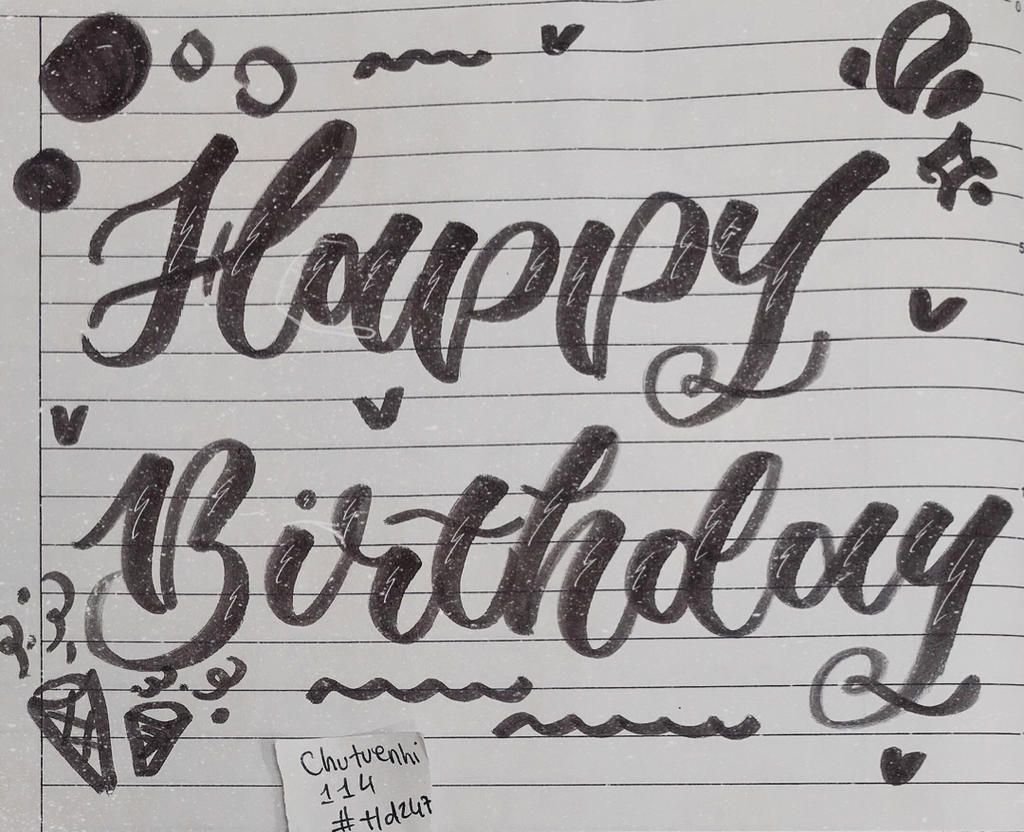 Happy
Birthday
Chutuenhi
114
#Hd247